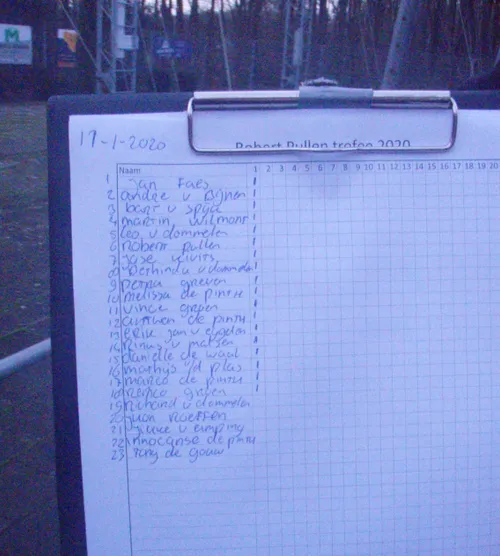 M
17-1-2020
Robert Pullen trofee 2020
Naam 1 2 3 4 5 6 7 8 9 10 11 12 13 14 15 16 17 18 19 20
1 jan Faes
2 andre v Bijnen
3 bart v spijk
4 martin wilmont
5 leo v dommelen
6 robert pullen
7 jose
8 v dommelen
9 petra greven
10 melissa de pinth
11 vince greven
12 de pinth
13 erik jan v
14 v
15 danielle de waal
16 mathijs vd plas
17 marco de pinth
18 remco greven
19 richard v dommelen
20 juan
21 v
22 de pinth
23 de gouw